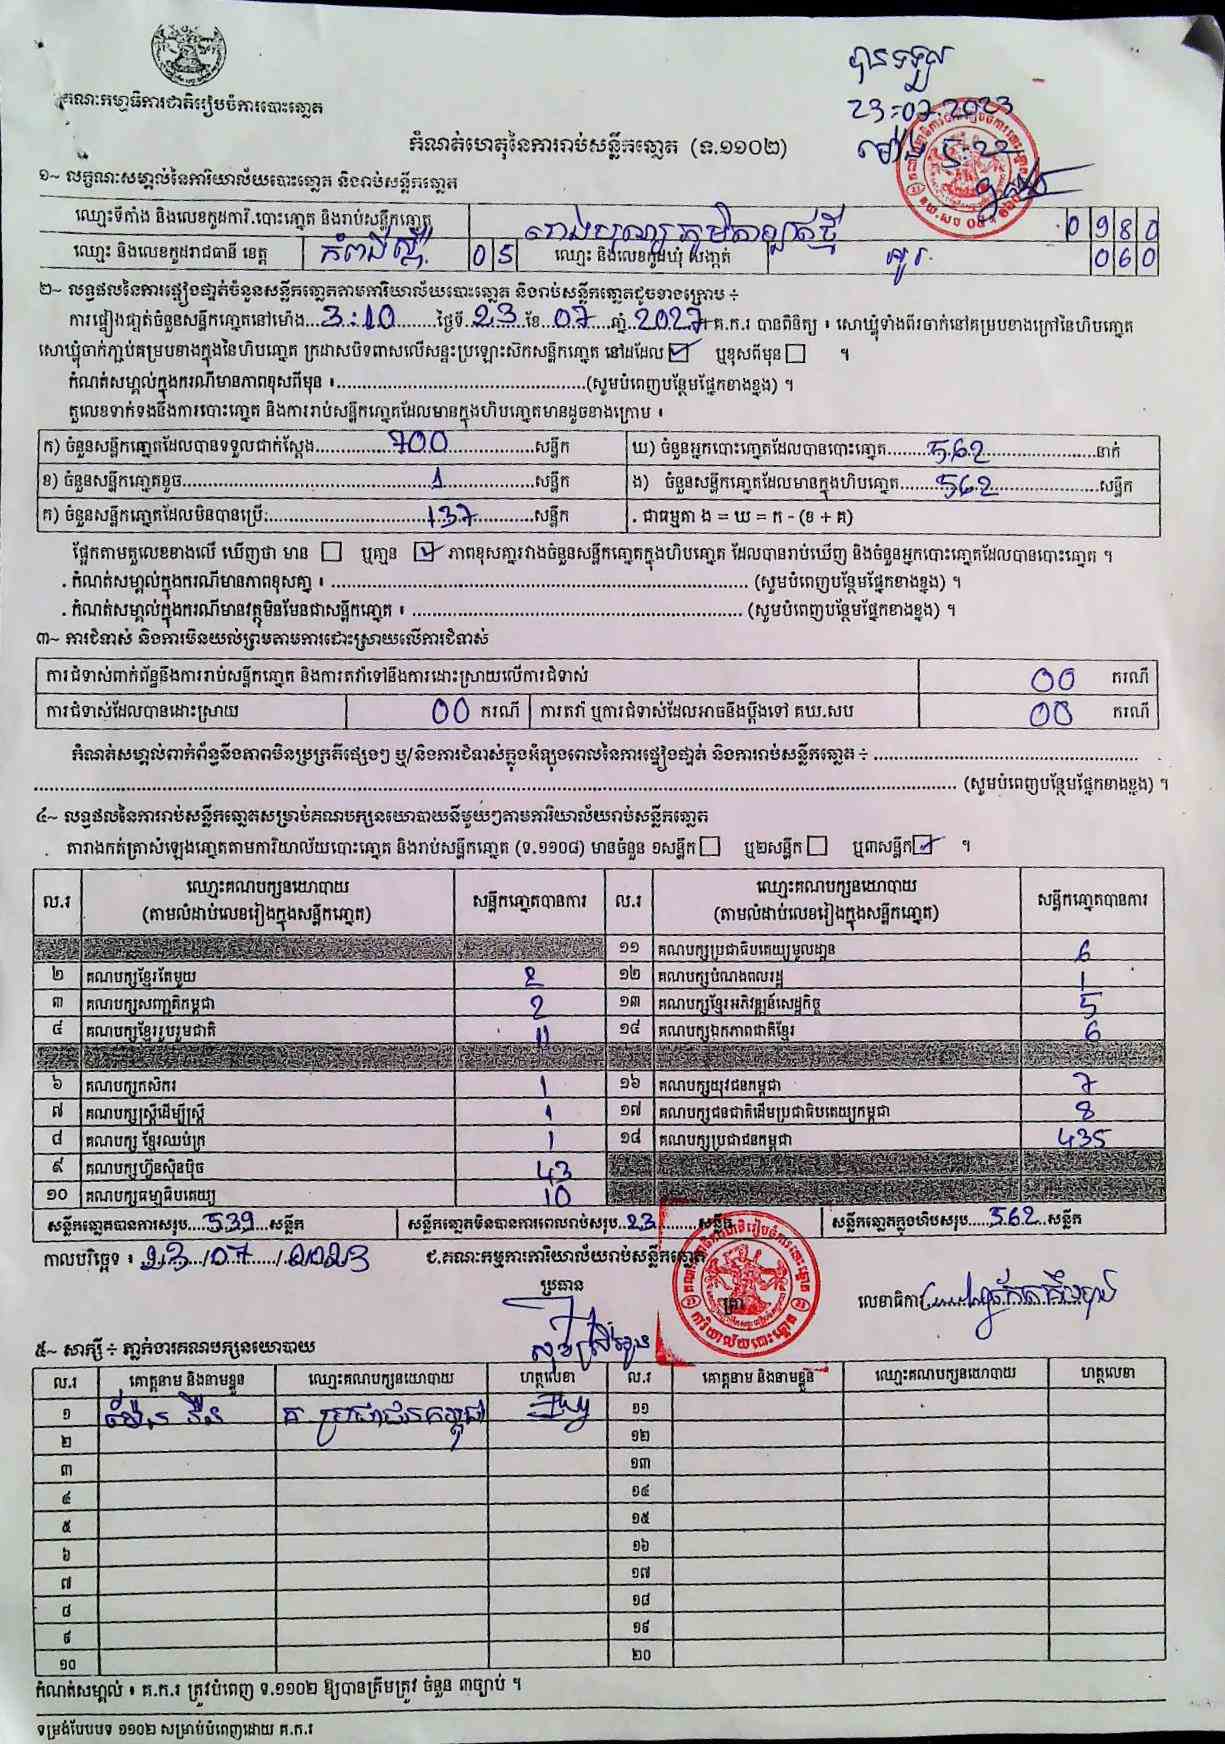 គណៈកម្មាធិការជាតិរៀបចំការបោះឆ្នោត
បានទទួល
23-07-2023
ម៉ោង 5:22
កំណត់ហេតុនៃការរាប់សន្លឹកឆ្នោត (ទ.១១០២)
១~ លក្ខណៈសម្គាល់នៃការិយាល័យបោះឆ្នោត និងរាប់សន្លឹកឆ្នោត
ឈ្មោះទីតាំង និងលេខកូដការិ.បោះឆ្នោត និងរាប់សន្លឹកឆ្នោត 0980
ឈ្មោះ និងលេខកូដរាជធានី ខេត្ត កំពង់ស្ពឺ 05 ឈ្មោះ និងលេខកូដឃុំ សង្កាត់ 060
២~ លទ្ធផលនៃការផ្ទៀងផ្ទាត់ចំនួនសន្លឹកឆ្នោតតាមការិយាល័យបោះឆ្នោត និងរាប់សន្លឹកឆ្នោតដូចខាងក្រោម ÷
ការផ្ទៀងផ្ទាត់ចំនួនសន្លឹកឆ្នោតនៅម៉ោង...3:10...ថ្ងៃទី...23...ខែ...07...ឆ្នាំ...2023 គ.ក.រ បានពិនិត្យ ៖ សោឃ្លុំទាំងពីរចាក់នៅគម្របខាងក្រៅនៃហិបឆ្នោត
សោឃ្លុំចាក់ភ្ជាប់គម្របខាងក្នុងនៃហិបឆ្នោត ក្រដាសបិទពាសលើសន្ទះប្រឡោះស៊កសន្លឹកឆ្នោត នៅដដែល ☑ ឬខុសពីមុន ☐ ។
កំណត់សម្គាល់ក្នុងករណីមានភាពខុសពីមុន ៖......(សូមបំពេញបន្ថែមផ្នែកខាងខ្នង) ។
តួលេខទាក់ទងនឹងការបោះឆ្នោត និងការរាប់សន្លឹកឆ្នោតដែលមានក្នុងហិបឆ្នោតមានដូចខាងក្រោម ៖
ក) ចំនួនសន្លឹកឆ្នោតដែលបានទទួលជាក់ស្តែង...700...សន្លឹក ឃ) ចំនួនអ្នកបោះឆ្នោតដែលបានបោះឆ្នោត...562...នាក់
ខ) ចំនួនសន្លឹកឆ្នោតខូច...1...សន្លឹក ង) ចំនួនសន្លឹកឆ្នោតដែលមានក្នុងហិបឆ្នោត...562...សន្លឹក
គ) ចំនួនសន្លឹកឆ្នោតដែលមិនបានប្រើ...137...សន្លឹក . ជាធម្មតា ង = ឃ = ក - (ខ + គ)
ផ្អែកតាមតួលេខខាងលើ ឃើញថា មាន ☐ ឬគ្មាន ☑ ភាពខុសគ្នារវាងចំនួនសន្លឹកឆ្នោតក្នុងហិបឆ្នោត ដែលបានរាប់ឃើញ និងចំនួនអ្នកបោះឆ្នោតដែលបានបោះឆ្នោត ។
. កំណត់សម្គាល់ក្នុងករណីមានភាពខុសគ្នា ៖ ...... (សូមបំពេញបន្ថែមផ្នែកខាងខ្នង) ។
. កំណត់សម្គាល់ក្នុងករណីមានវត្ថុមិនមែនជាសន្លឹកឆ្នោត ៖ ...... (សូមបំពេញបន្ថែមផ្នែកខាងខ្នង) ។
៣~ ការជំទាស់ និងការមិនយល់ព្រមតាមការដោះស្រាយលើការជំទាស់
ការជំទាស់ពាក់ព័ន្ធនឹងការរាប់សន្លឹកឆ្នោត និងការតវ៉ាទៅនឹងការដោះស្រាយលើការជំទាស់ 00 ករណី
ការជំទាស់ដែលបានដោះស្រាយ 00 ករណី ការតវ៉ា ឬការជំទាស់ដែលអាចនឹងប្តឹងទៅ គឃ.សប 00 ករណី
កំណត់សម្គាល់ពាក់ព័ន្ធនឹងភាពមិនប្រក្រតីផ្សេងៗ ឬ/និងការជំទាស់ក្នុងអំឡុងពេលនៃការផ្ទៀងផ្ទាត់ និងការរាប់សន្លឹកឆ្នោត ÷ ......
...... (សូមបំពេញបន្ថែមផ្នែកខាងខ្នង) ។
៤~ លទ្ធផលនៃការរាប់សន្លឹកឆ្នោតសម្រាប់គណបក្សនយោបាយនីមួយៗតាមការិយាល័យរាប់សន្លឹកឆ្នោត
តារាងកត់ត្រាសំឡេងឆ្នោតតាមការិយាល័យបោះឆ្នោត និងរាប់សន្លឹកឆ្នោត (ទ.១១០៨) មានចំនួន ១សន្លឹក ☐ ឬ២សន្លឹក ☐ ឬ៣សន្លឹក ☑ ។
ល.រ ឈ្មោះគណបក្សនយោបាយ (តាមលំដាប់លេខរៀងក្នុងសន្លឹកឆ្នោត) សន្លឹកឆ្នោតបានការ ល.រ ឈ្មោះគណបក្សនយោបាយ (តាមលំដាប់លេខរៀងក្នុងសន្លឹកឆ្នោត) សន្លឹកឆ្នោតបានការ
១១ គណបក្សប្រជាធិបតេយ្យមូលដ្ឋាន 6
២ គណបក្សខ្មែរតែមួយ 2 ១២ គណបក្សបំណងពលរដ្ឋ 1
៣ គណបក្សសញ្ជាតិកម្ពុជា 2 ១៣ គណបក្សខ្មែរអភិវឌ្ឍន៍សេដ្ឋកិច្ច 5
៤ គណបក្សខ្មែររួបរួមជាតិ 11 ១៤ គណបក្សឯកភាពជាតិខ្មែរ 6
៦ គណបក្សកសិករ 1 ១៦ គណបក្សយុវជនកម្ពុជា 7
៧ គណបក្សស្ត្រីដើម្បីស្ត្រី 1 ១៧ គណបក្សជនជាតិដើមប្រជាធិបតេយ្យកម្ពុជា 8
៨ គណបក្ស ខ្មែរឈប់ក្រ 1 ១៨ គណបក្សប្រជាជនកម្ពុជា 435
៩ គណបក្សហ៊្វុនស៊ិនប៉ិច 43
១០ គណបក្សធម្មាធិបតេយ្យ 10
សន្លឹកឆ្នោតបានការសរុប...539...សន្លឹក សន្លឹកឆ្នោតមិនបានការពេលរាប់សរុប...23...សន្លឹក សន្លឹកឆ្នោតក្នុងហិបសរុប...562...សន្លឹក
កាលបរិច្ឆេទ ៖ 23/07/2023 ជ.គណៈកម្មការការិយាល័យរាប់សន្លឹកឆ្នោត
ប្រធាន
លេខាធិការ
៥~ សាក្សី ÷ ភ្នាក់ងារគណបក្សនយោបាយ
ល.រ គោត្តនាម និងនាមខ្លួន ឈ្មោះគណបក្សនយោបាយ ហត្ថលេខា ល.រ គោត្តនាម និងនាមខ្លួន ឈ្មោះគណបក្សនយោបាយ ហត្ថលេខា
១ គ ប្រជាជនកម្ពុជា ១១
២ ១២
៣ ១៣
៤ ១៤
៥ ១៥
៦ ១៦
៧ ១៧
៨ ១៨
៩ ១៩
១០ ២០
កំណត់សម្គាល់ ៖ គ.ក.រ ត្រូវបំពេញ ទ.១១០២ ឱ្យបានត្រឹមត្រូវ ចំនួន ៣ច្បាប់ ។
ទម្រង់បែបបទ ១១០២ សម្រាប់បំពេញដោយ គ.ក.រ